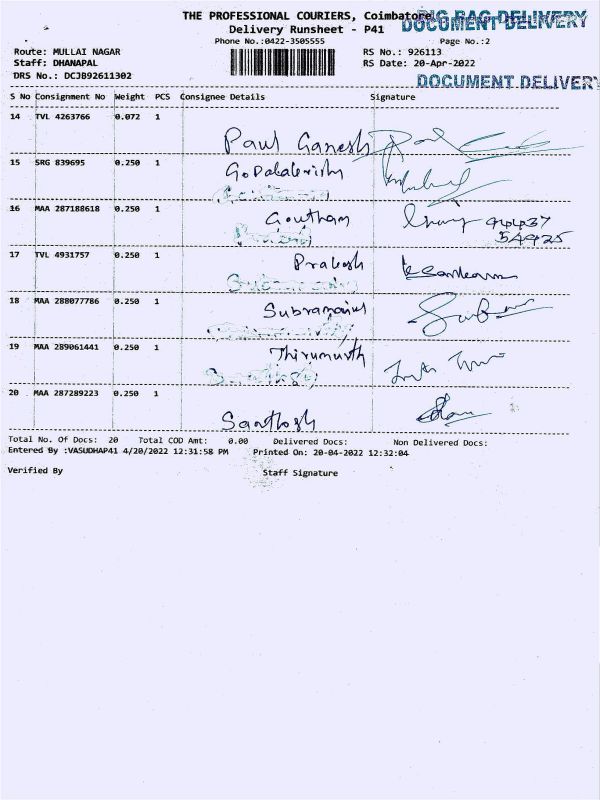 THE PROFESSIONAL COURIERS, Coimbatore
BIG BAG DELIVERY
DOCUMENT DELIVERY
Delivery Runsheet - P41
Phone No.:0422-3505555
Page No.:2
Route: MULLAI NAGAR
RS No.: 926113
Staff: DHANAPAL
RS Date: 20-Apr-2022
DRS No.: DCJB92611302
DOCUMENT DELIVERY
S No Consignment No Weight PCS Consignee Details Signature
14 TVL 4263766 0.072 1
Paul Ganesh
15 SRG 839695 0.250 1
Gopalakrishn
16 MAA 287188618 0.250 1
Goutham 94437
54425
17 TVL 4931757 0.250 1
Prakash
18 MAA 288077786 0.250 1
Subramanius
19 MAA 289061441 0.250 1
Thirumurth
20 MAA 287289223 0.250 1
Santhosh
Total No. Of Docs: 20 Total COD Amt: 0.00 Delivered Docs: Non Delivered Docs:
Entered By :VASUDHAP41 4/20/2022 12:31:58 PM Printed On: 20-04-2022 12:32:04
Verified By Staff Signature